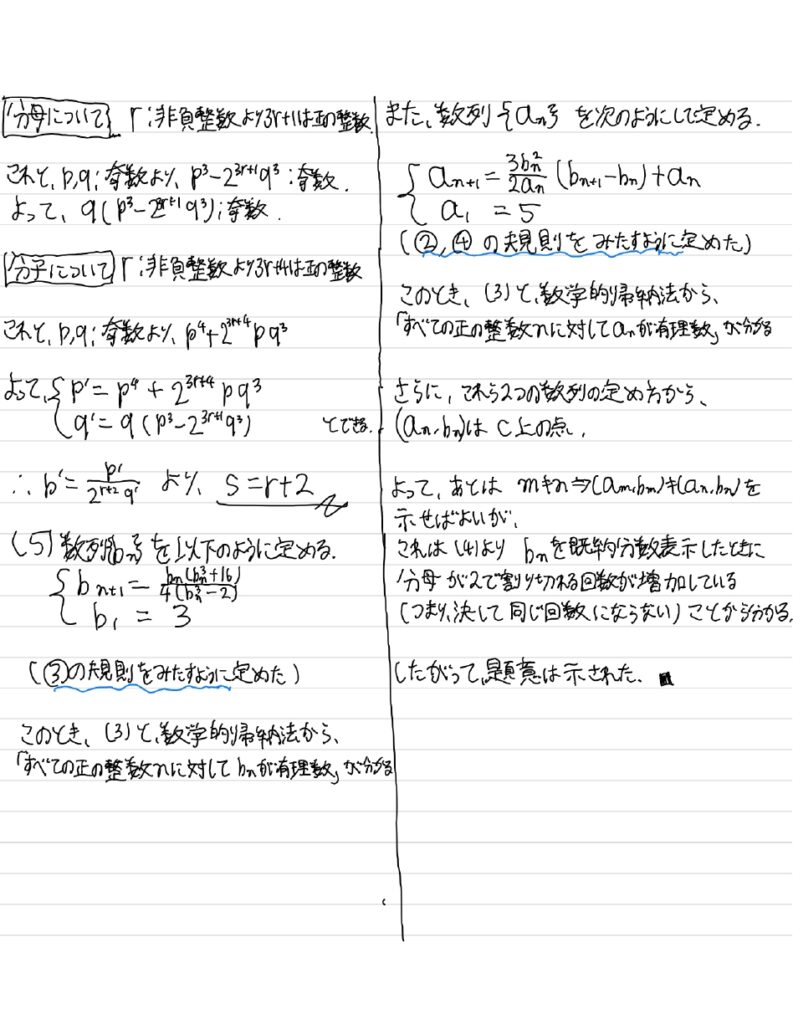 分母について r:非負整数より3r+1は正の整数.
これと、p,q:奇数より、p³-2^{3r+1}q³:奇数.
よって、q(p³-2^{3r+1}q³):奇数.
分子について r:非負整数より3r+4は正の整数
これと、p,q:奇数より、p⁴+2^{3r+4}pq³
よって、{p'=p⁴+2^{3r+4}pq³
q'=q(p³-2^{3r+1}q³) とできる.
∴ b'=p'/(2^{r+2}q') より、s=r+2
(5) 数列{b_n}を以下のように定める.
{b_{n+1}=b_n(b_n³+16)/4(b_n³-2)
b_1=3
(③の規則をみたすように定めた)
このとき、(3)と、数学的帰納法から、
「すべての正の整数nに対してb_nが有理数」が分かる
また、数列{a_n}を次のようにして定める.
{a_{n+1}=3b_n²/2a_n (b_{n+1}-b_n)+a_n
a_1=5
(②,④の規則をみたすように定めた)
このとき、(3)と、数学的帰納法から、
「すべての正の整数nに対してa_nが有理数」が分かる
さらに、これら2つの数列の定め方から、
(a_n,b_n)はC上の点.
よって、あとは m≠n⇒(a_m,b_m)≠(a_n,b_n)を
示せばよいが、
これは(4)より b_nを既約分数表示したときに
分母が2で割り切れる回数が増加している
(つまり、決して同じ回数にならない)ことから分かる.
したがって、題意は示された. ■